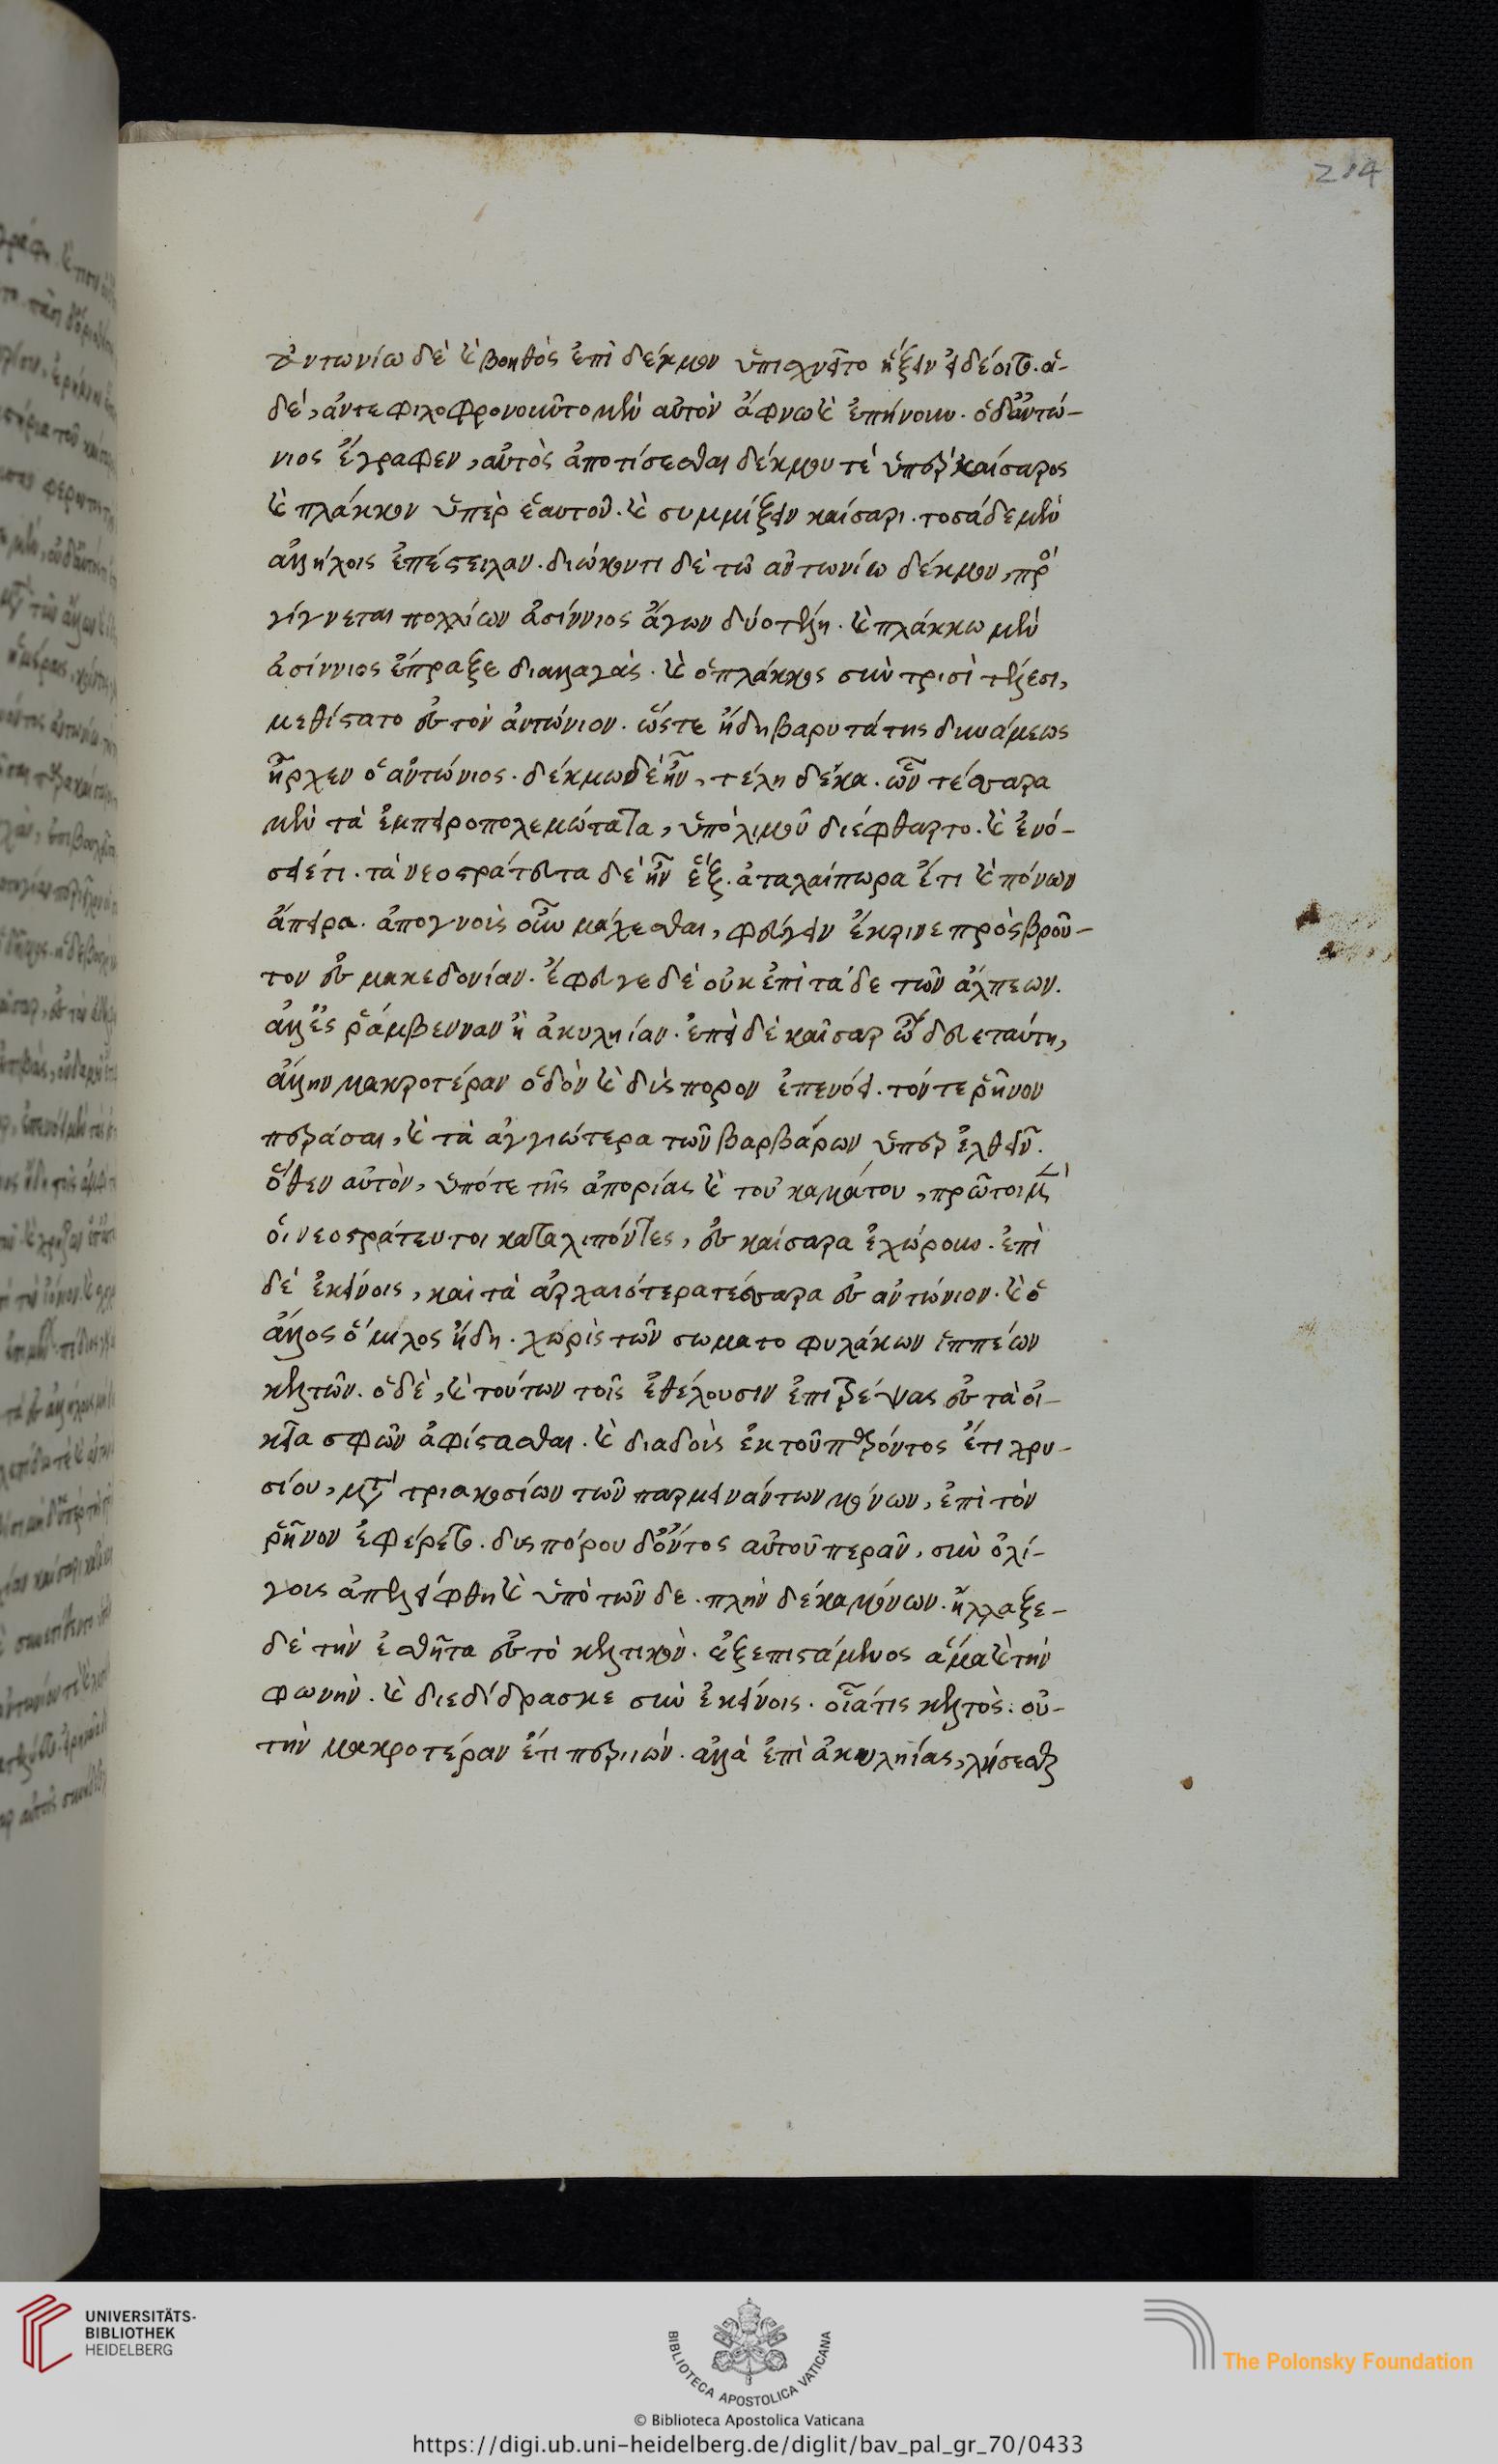 284
ἀντωνίω δὲ καὶ βοηθὸς ἐπὶ δέκμον ὑπισχνεῖτο ἥξειν εἰ δέοιτο. οἱ-
δὲ, ἀντεφιλοφρονοῦντο μὲν αὐτὸν ἄφνω καὶ ἐπήνουν. ὁ δ' ἀντώ-
νιος ἔγραφεν, αὐτὸς ἀποτίσεσθαι δέκμον τὲ ὑπὲρ καίσαρος
καὶ πλάκκον ὑπὲρ ἑαυτοῦ. καὶ συμμίξειν καίσαρι. τοσάδε μὲν
ἀλλήλοις ἐπέστειλαν. διώκοντι δὲ τῶ ἀντωνίω δέκμον, προσ
γίγνεται πολλίων ἀσίννιος ἄγων δύο τέλη. καὶ πλάκκω μὲν
ἀσίννιος ἔπραξε διαλλαγὰς. καὶ ὁ πλάκκος σὺν τρισὶ τέλεσι,
μεθίστατο ἐς τὸν ἀντώνιον. ὥστε ἤδη βαρυτάτης δυνάμεως
ἦρχεν ὁ ἀντώνιος. δέκμω δὲ ἦν, τέλη δέκα. ὧν τέσσαρα
μὲν τὰ ἐμπειροπολεμώτατα, ὑπὸ λιμοῦ διέφθαρτο. καὶ ἐνό-
σει ἔτι. τὰ νεοστράτευτα δὲ ἦν ἕξ. ἀταλαίπωρα ἔτι καὶ πόνων
ἄπειρα. ἀπογνοὺς οὖν μάχεσθαι, φεύγειν ἔκρινε πρὸς βροῦ-
τον ἐς μακεδονίαν. ἔφευγε δὲ οὐκ ἐπὶ τάδε τῶν ἄλπεων.
ἀλλ' ἐς ῥάμβενναν ἢ ἀκυληίαν. ἐπεὶ δὲ καῖσαρ ὤδευε ταύτη,
ἄλλην μακροτέραν ὁδὸν καὶ δύσπορον ἐπενόει. τόν τε ῥῆνον
περάσαι, καὶ τὰ ἀγριώτερα τῶν βαρβάρων ὑπερελθεῖν.
ὅθεν αὐτὸν, ὑπό τε τῆς ἀπορίας καὶ τοῦ καμάτου, πρῶτοι μὲν
οἱ νεοστράτευτοι καταλιπόντες, ἐς καίσαρα ἐχώρουν. ἐπὶ
δὲ ἐκείνοις, καὶ τὰ ἀρχαιότερα τέσσαρα ἐς ἀντώνιον. καὶ ὁ
ἄλλος ὅμιλος ἤδη. χωρὶς τῶν σωματοφυλάκων ἱππέων
κελτῶν. ὁ δὲ, καὶ τούτων τοῖς ἐθέλουσιν ἐπιτρέψας ἐς τὰ οἰ-
κεῖα σφῶν ἀφίστασθαι. καὶ διαδοὺς ἐκ τοῦ παρόντος ἔτι χρυ-
σίου, μετὰ τριακοσίων τῶν παραμεινάντων μόνων, ἐπὶ τὸν
ῥῆνον ἐφέρετο. δυσπόρου δ' ὄντος αὐτοῦ περᾶν, σὺν ὀλί-
γοις ἀπελείφθη καὶ ὑπὸ τῶνδε. πλὴν δέκα μόνων. ἤλλαξε-
δὲ τὴν ἐσθῆτα ἐς τὸ κελτικὸν. ἐξεπιστάμενος ἅμα καὶ τὴν
φωνὴν. καὶ διεδίδρασκε σὺν ἐκείνοις. οἷά τις κελτὸς. οὐ-
τὴν μακροτέραν ἔτι περιιὼν. ἀλλὰ ἐπὶ ἀκυληίας, λήσεσθαι
UNIVERSITÄTS-
BIBLIOTHEK
HEIDELBERG
BIBLIOTECA APOSTOLICA VATICANA
The Polonsky Foundation
© Biblioteca Apostolica Vaticana
https://digi.ub.uni-heidelberg.de/diglit/bav_pal_gr_70/0433